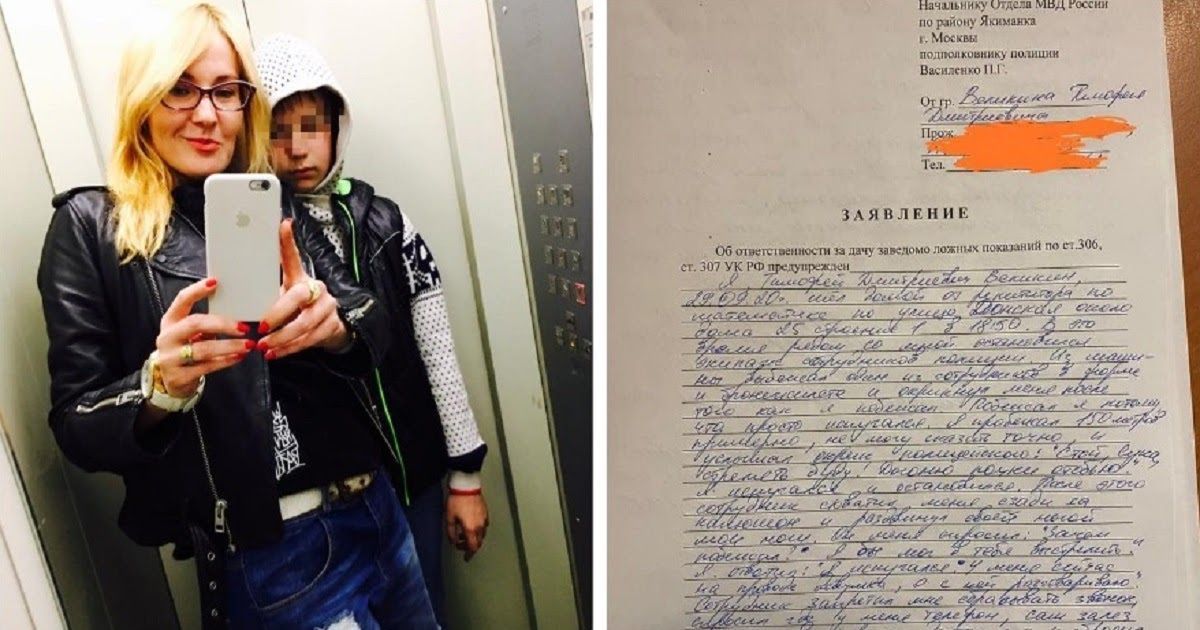 Начальнику Отдела МВД России
по району Якиманка
г. Москвы
подполковнику полиции
Василенко П.Г.
От гр. Великина Тимофея
Дмитриевича
Прож.
Тел.
ЗАЯВЛЕНИЕ
Об ответственности за дачу заведомо ложных показаний по ст.306,
ст. 307 УК РФ предупрежден
Я, Тимофей Дмитриевич Великин,
шёл домой от репетитора по
математике по улице Донская около
дома 25 строения 1 в 18:50. В это
время рядом со мной остановился
экипаж сотрудников полиции. Из маши-
ны один из сотрудников в форме
и бронежилете и окрикнул меня после
того как я побежал. Побежал я потому
что просто испугался. Я пробежал 150 метров
примерно, не могу сказать точно, и
услышал окрик полицейского: "Стой, сука,
стрелять буду! Догоню почки отобью".
Я испугался и остановился. После этого
сотрудник схватил меня сзади за
капюшон и раздвинул своей ногой
мои ноги. Он меня спросил: "Зачем
побежал?" Я бы мог в тебя выстрелить.
Я ответил: "Я испугался. У меня сейчас
на проводе девушка, я с ней разговариваю."
Сотрудник запретил мне сбрасывать звонок,
спросил где у меня телефон, сам залез